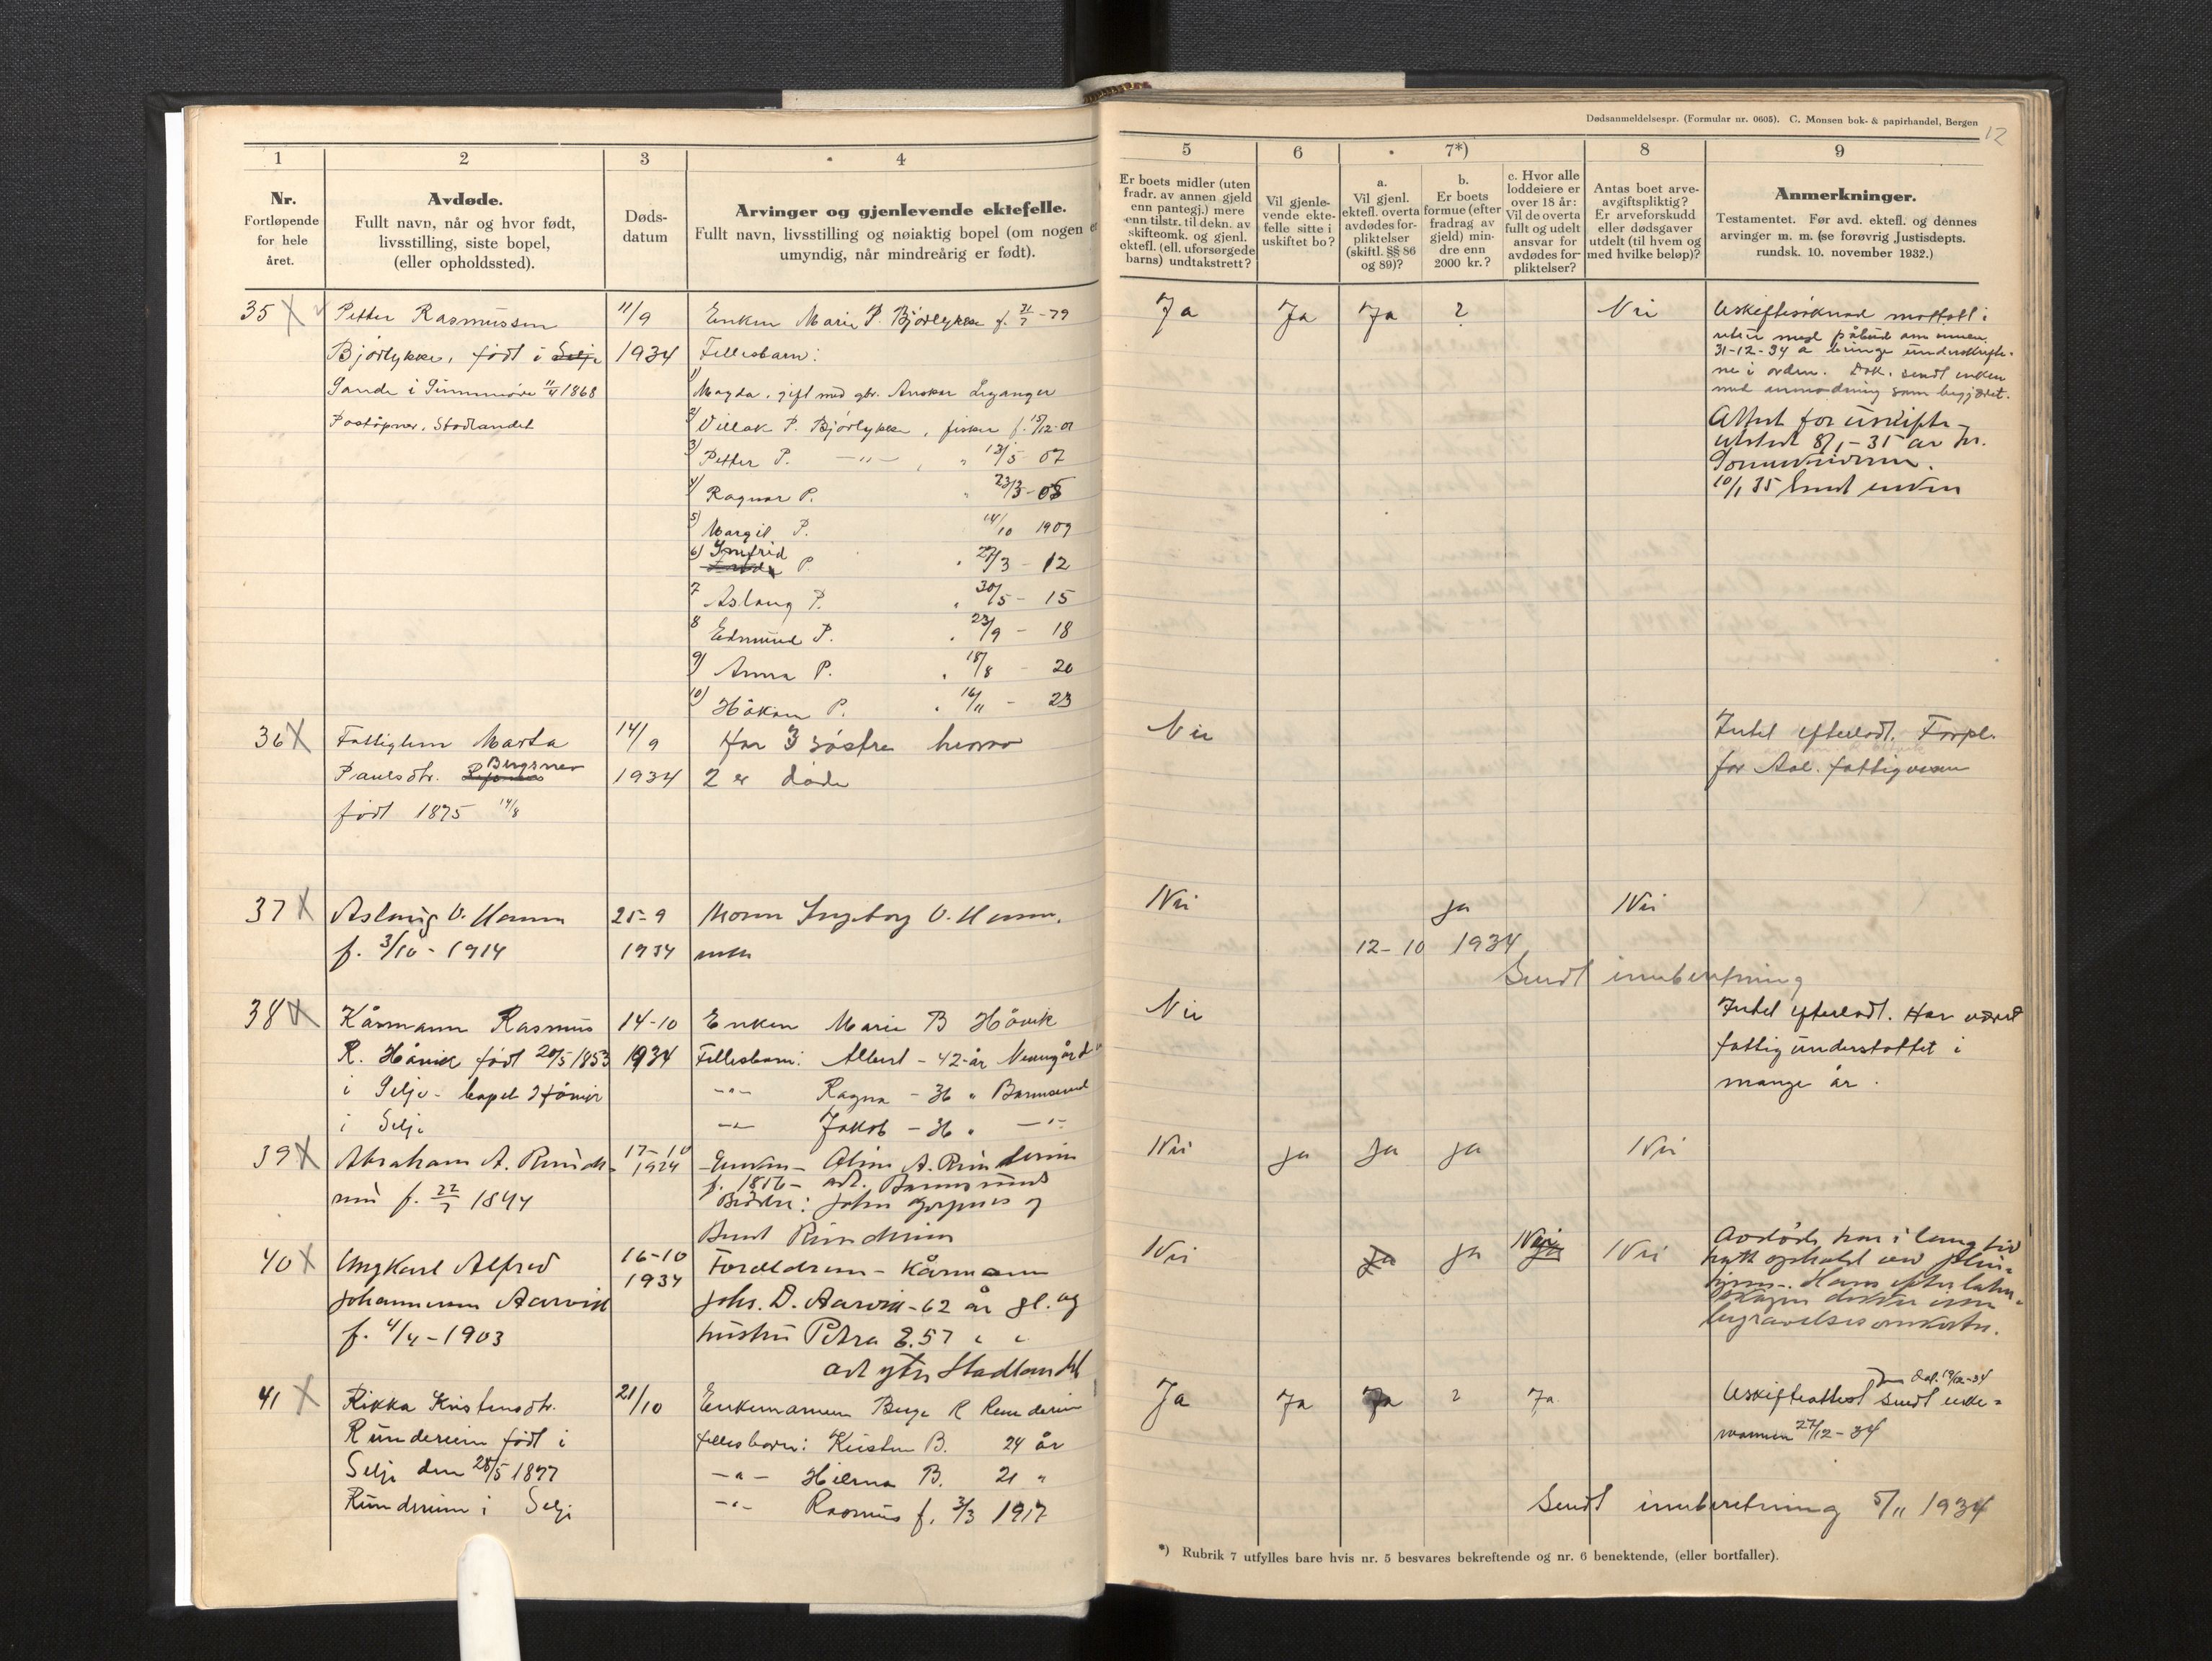 Dødsanmeldelsespr. (Formular nr. 0605). C. Monsen bok- & papirhandel, Bergen
12
1
2
3
4
5
6
7*)
8
9
Nr.
Fortløpende
for hele
året.
Avdøde.
Fullt navn, når og hvor født,
livsstilling, siste bopel,
(eller opholdssted).
Døds-
datum
Arvinger og gjenlevende ektefelle.
Fullt navn, livsstilling og nøiaktig bopel (om nogen er
umyndig, når mindreårig er født).
Er boets midler (uten
fradr. av annen gjeld
enn pantegj.) mere
enn tilstr. til dekn. av
skifteomk. og gjenl.
ektefl. (ell. uforsørgede
barns) undtakstrett?
Vil gjenle-
vende ekte-
felle sitte i
uskiftet bo?
a.
Vil gjenl.
ektefl. overta
avdødes for-
pliktelser
(skiftl. §§ 86
og 89)?
b.
Er boets
formue (efter
fradrag av
gjeld) min-
dre enn
2000 kr.?
c. Hvor alle
loddeiere er
over 18 år:
Vil de overta
fullt og udelt
ansvar for
avdødes for-
pliktelser?
Antas boet arve-
avgiftspliktig?
Er arveforskudd
eller dødsgaver
utdelt (til hvem og
med hvilke beløp)?
Anmerkninger.
Testamentet. Før avd. ektefl. og dennes
arvinger m. m. (se forøvrig Justisdepts.
rundsk. 10. november 1932.)
35 X
Petter Rasmussen
Bjørlykke, født i Selje
Sande i Sunnmøre 11/4 1868
Postopner, Stadlandet
11/9
1934
Enken Marie P. Bjørlykke f. -79
Fellesbarn:
1) Magda, gift med gbr. Ansker Leganger
2) Villak P. Bjørlykke, fisker f. 15/12-01
3) Petter P. —"— , " 13/5 07
4) Ragnar P. " 23/3-05
5) Margit P. 14/10 1909
6) P. " 27/3 - 12
7 Aslaug P. " 30/5 - 15
8 Edmund P. " 23/9 - 18
9) Anna P. " 18/8 - 20
10) Håkon P. " 16/11 - 23
Ja
Ja
Ja
?
Nei
Uskiftesøknad mottatt i
retur med påbud om innen
31-12-34 å bringe underskrifte-
ne i orden. Dok. sendt enken
med anmodning som begjæret.
Attest for uskifte
utstedt 8/1-35 av hr.
Sorenskriveren.
10/1 35 Sendt enken
36 X
Fattiglem Marta
Paulsdtr. Bergsnev
født 1875 14/8
14/9
1934
Har 3 søstre hvorav
2 er døde
Nei
Intet efterladt. Forpl.
for Aal. fattigvesen
37 X
Aslaug O. Hamn
f. 3/10 - 1914
25-9
1934
Moren Ingeborg O. Hamn,
enke
Nei
ja
Nei
12-10 1934
Sendt innberetning
38 X
Kårmann Rasmus
R. Håvik født 20/5 1853
i Selje - bopel
i Selje
14-10
1934
Enken Marie B Håvik
Fellesbarn: Albert - 42 år
—"— Ragna - 36 " Barmsund
—"— Jakob - 36 " —"—
Nei
Intet efterladt. Har været
fattigunderstøttet i
mange år.
39 X
Abraham A. Runde-
reim f. 22/7 1844
17-10
1934
Enken - Oline A. Runderеim
f. 1856 - adr. Barmsund
Brødre: John og
Bernt Runderеim
Nei
ja
ja
ja
Nei
40 X
Ungkarl Alfred
Johannessen Aarvik
f. 4/4-1903
16-10
1934
Foreldrene - Kårmann
Johs. D. Aarvik - 62 år gl. og
hustru Petra E. 57 " "
adr ytre Stadlandet
Nei
ja
ja
Nei
ja
Nei
Avdøde har i lang tid
hatt ophold ved pleie-
hjem. Hans efterlaten-
skaper dekker
begravelsesomkostn.
41 X
Rikka Kristensdtr.
Runderеim født i
Selje den 28/5 1877
Runderеim i Selje
21/10
Enkemannen Berge R Runderеim
fellesbarn: Kristen B. 24 år
—"— Hilma B. 21 "
—"— Rasmus f. 3/3 1917
Ja
Ja
Ja
?
Ja
Uskifteattest sendt enke-
mannen 27/12-34
Sendt innberetning 5/11 1934
*) Rubrik 7 utfylles bare hvis nr. 5 besvares bekreftende og nr. 6 benektende, (eller bortfaller).